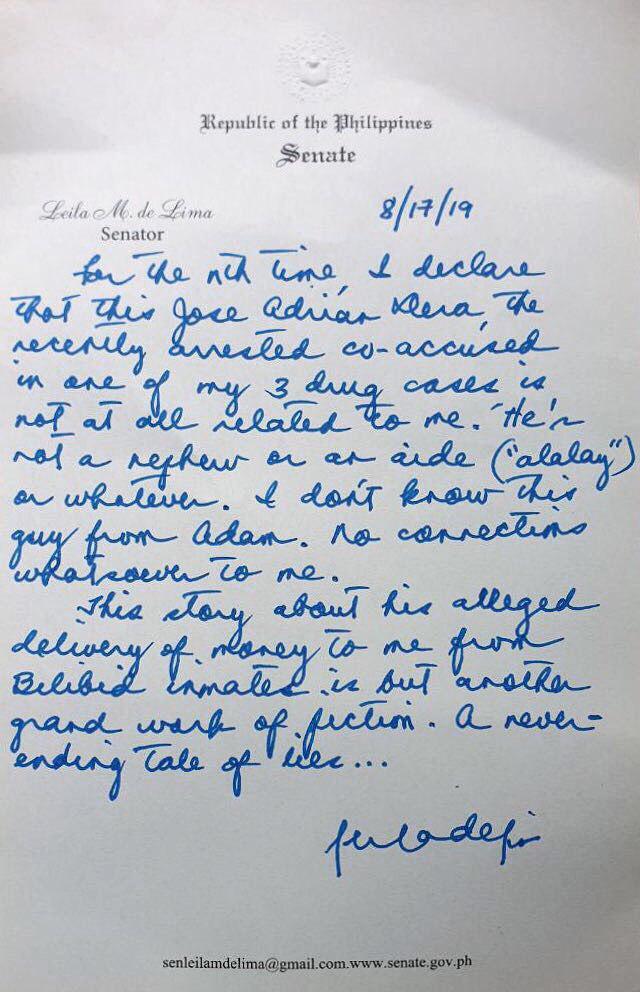 Republic of the Philippines
Senate
Leila M. de Lima
Senator
8/17/19
For the nth time, I declare
that this Jose Adrian Dera, the
recently arrested co-accused
in one of my 3 drug cases is
not at all related to me. He's
not a nephew or an aide ("alalay")
or whatever. I don't know this
guy from Adam. No connections
whatsoever to me.
This story about his alleged
delivery of money to me from
Bilibid inmates is but another
grand work of fiction. A never-
ending tale of lies...
senleilamdelima@gmail.com.www.senate.gov.ph